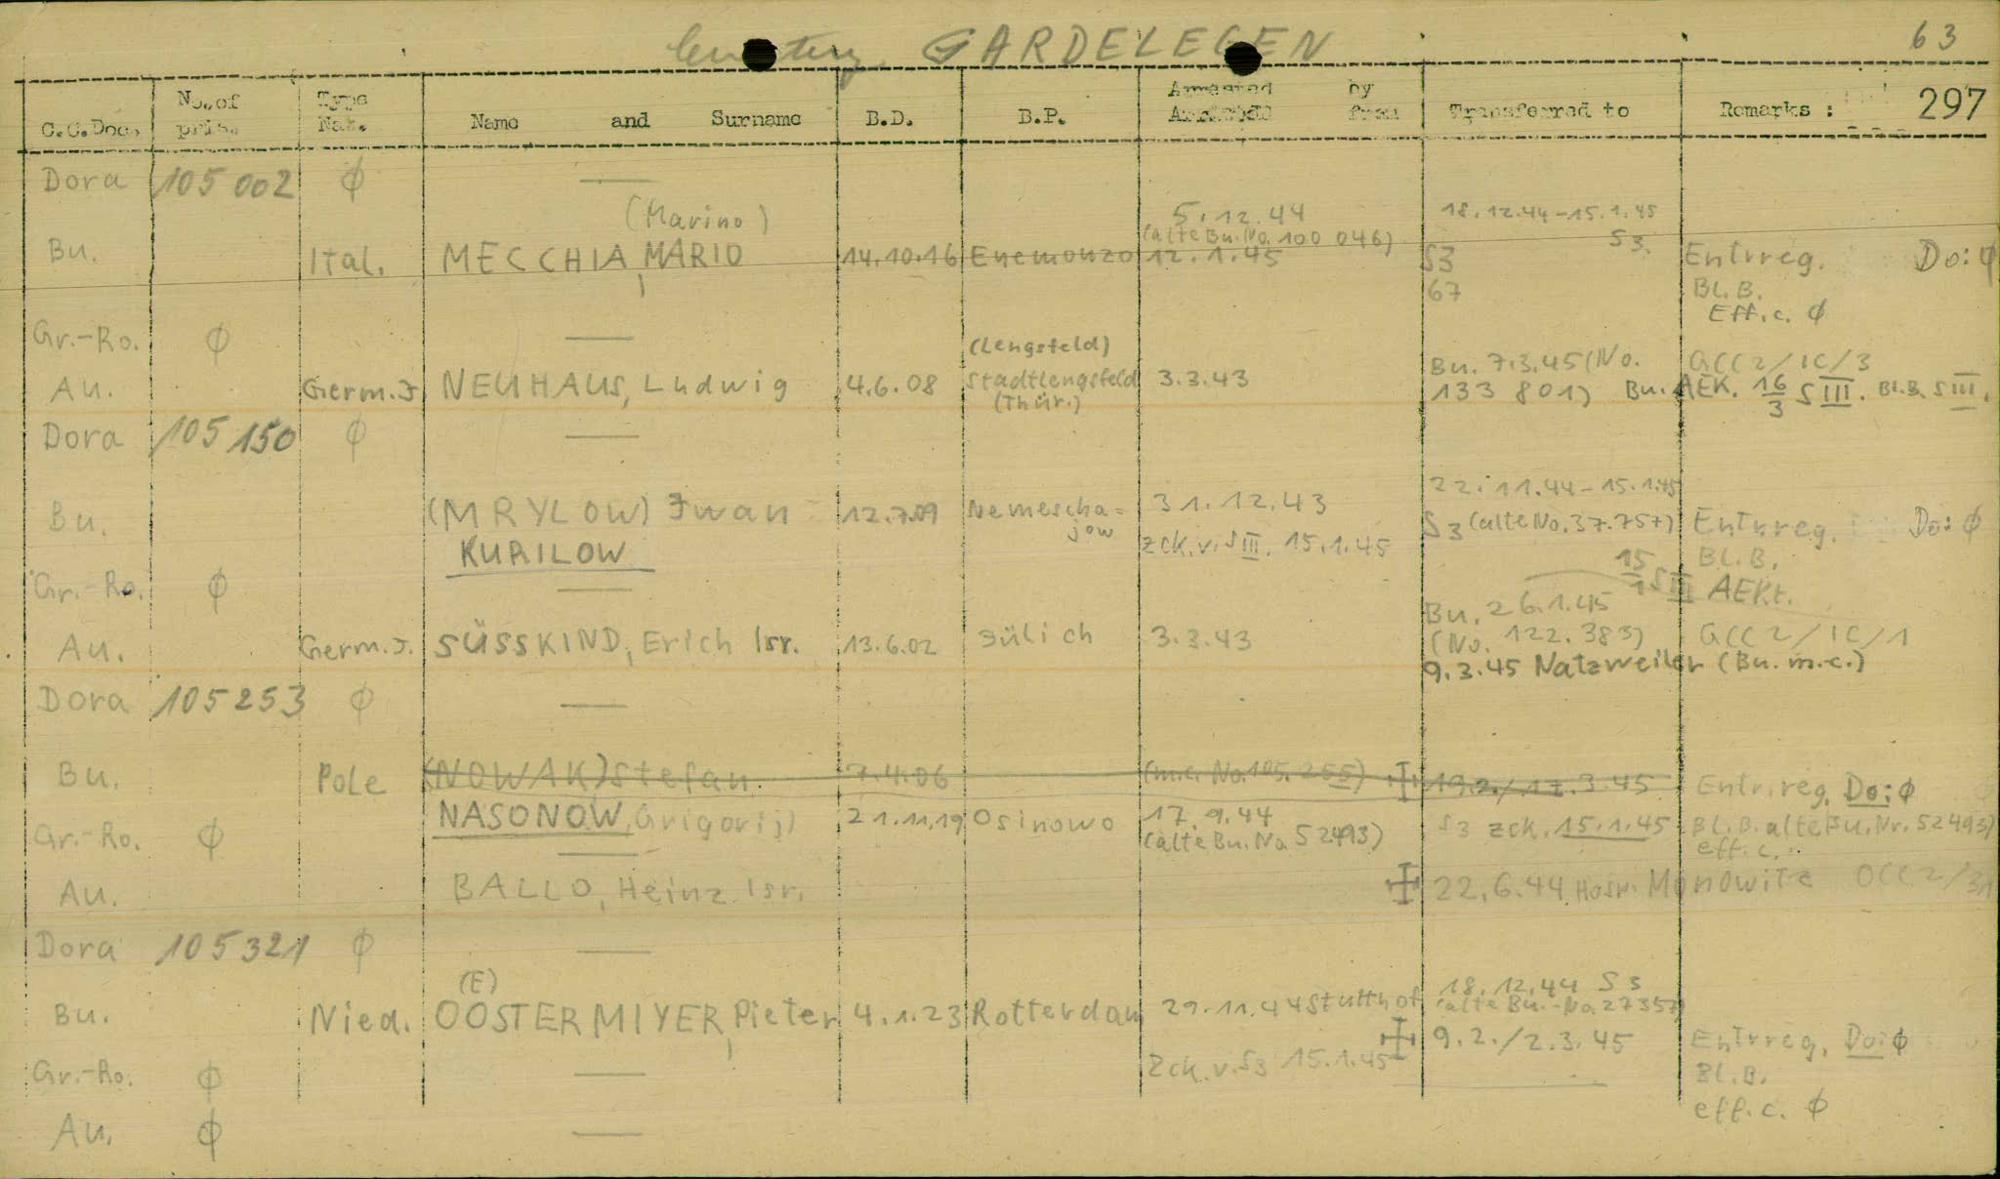 Cemetery GARDELEGEN 63
C.C.Doc. No. of pris. Type Nat. Name and Surname B.D. B.P. Arrested by from Transferred to Remarks : 297
Dora 105 002 ϕ —
(Marino) 5.12.44 18.12.44-15.1.45
(alte Bu. No. 100 046) S3.
Bu. Ital. MECCHIA, MARIO 14.10.16 Enemonzo 12.1.45 S3 Entrreg. Do: ϕ
67 Bl. B.
Eff.c. ϕ
Gr.-Ro. ϕ —
(Lengsfeld) Bu. 7.3.45 (No. GCC2/IC/3
Au. Germ.J. NEUHAUS, Ludwig 4.6.08 Stadtlengsfeld 3.3.43 133 801) Bu. AEK. 16/3 S III. Bl.B. S III.
(Thür.)
Dora 105 150 ϕ —
22.11.44-15.1.45
Bu. (MRYLOW) Iwan 12.7.09 Nemescha= 31.12.43 S3 (alte No. 37.757) Entrreg. Do: ϕ
jow
KURILOW zck. v. S III. 15.1.45 Bl. B.
15/1 S III AEKt.
Gr.-Ro. ϕ —
Bu. 26.1.45
Au. Germ.J. SÜSSKIND, Erich Isr. 13.6.02 Jülich 3.3.43 (No. 122.383) GCC2/IC/1
9.3.45 Natzweiler (Bu. m.c.)
Dora 105253 ϕ —
Bu. Pole (NOWAK) Stefan 7.4.06 (m.c. No. 105.255) 19.2./17.3.45 Entrreg. Do: ϕ
NASONOW, Grigorij) 21.11.19 Osinowo 17.9.44 S3 zck. 15.1.45 Bl. B. alte Bu. Nr. 52493)
(alte Bu. No. 52493) eff. c.
Gr.-Ro. ϕ —
Au. BALLO, Heinz Isr. 22.6.44 Hosp. Monowitz OCC2/
Dora 105321 ϕ —
(E) 18.12.44 S3
Bu. Nied. OOSTERMIYER, Pieter 4.1.23 Rotterdam 29.11.44 Stutthof (alte Bu.-No. 27357)
9.2./2.3.45 Entrreg. Do: ϕ
Gr.-Ro. ϕ — zck. v. S3 15.1.45 Bl. B.
eff. c. ϕ
Au. ϕ —